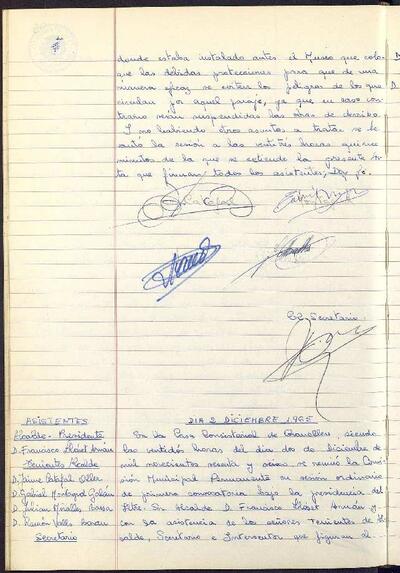 donde estaba instalado antes el Museo que colo-
que las debidas protecciones para que de una
manera eficaz se eviten los peligros de los que
circulan por aquel paraje, ya que en caso con-
trario serán suspendidas las obras de derribo.
Y no habiendo otros asuntos a tratar se le-
vantó la sesión a las veintitrés horas quince
minutos de la que se extiende la presente Ac-
ta que firman todos los asistentes, Doy fe.
El Secretario.
ASISTENTES
Alcalde-Presidente
D. Francisco Llobet
Tenientes Alcalde
D. Jaime Oller
D. Gabriel
D. Miralles
D. Ramón Valls
Secretario
DIA 2 DICIEMBRE 1965
En la Casa Consistorial de Granollers, siendo
las veintidós horas del día dos de Diciembre de
mil novecientos sesenta y cinco se reunió la Comi-
sión Municipal Permanente en sesión ordinaria
de primera convocatoria bajo la presidencia del
Iltre. Sr. Alcalde D. Francisco Llobet y
con la asistencia de los señores Tenientes de Al-
calde, Secretario e Interventor que figuran al